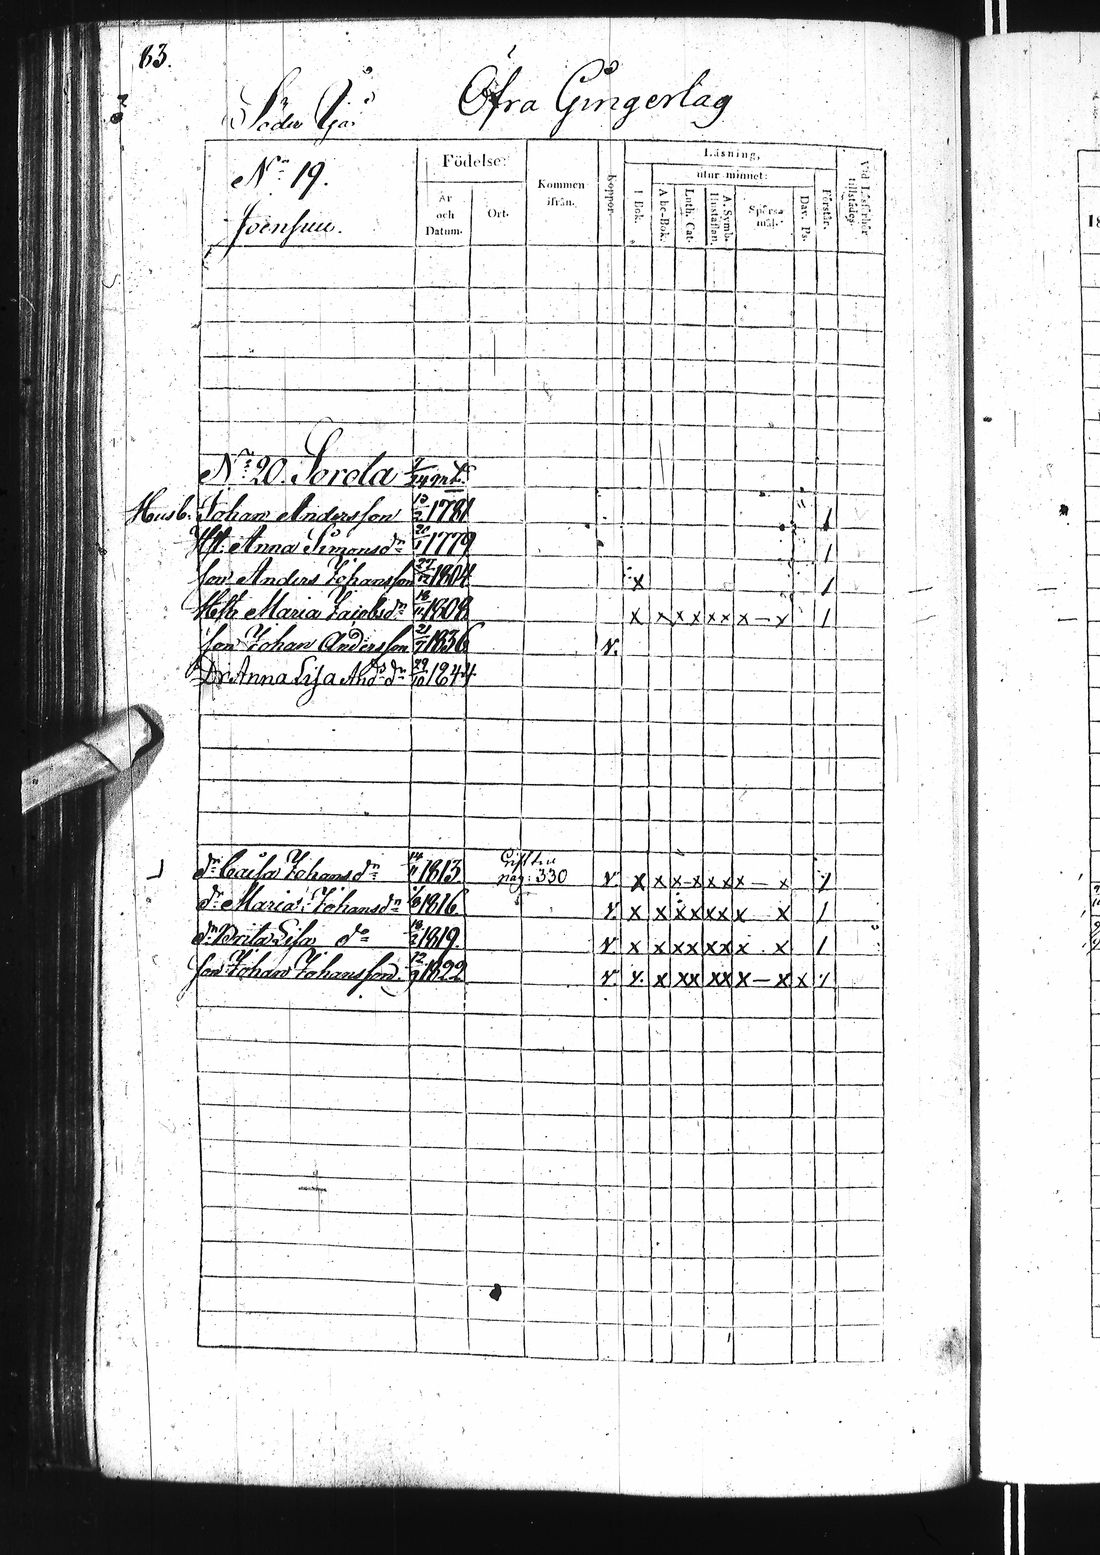 83.
Öfra Gingerlag
Söder
No 19.
Joensuu.
Födelse:
År och Datum.
Ort.
Kommen ifrån.
Koppor.
Läsning,
utur minnet:
I Bok.
Abc-Bok.
Luth. Cat.
A. Symb. Hustaflan.
Spörsmål.
Dav. Ps.
Förstår.
Vid Läsförhör tillstädes.
No 20. Sorola 7/24 mtl
Husb. Johan Andersson 1781 1
H. Anna Simonsdr 1779 1
son Anders Johansson 27/12 1804 x 1
Hst Maria Jacobsdr 18/11 1808 x x x x x x x — x 1
son Johan Andersson 21/7 1836 v.
Dr Anna Lisa Andsdr 29/10 1844.
dr Caisa Johansdr 14/11 1813 Gift pag: 330 v. x x x - x x x x — x 1
dr Maria Johansdr 1816 v x x x x x x x x 1
dr Brita Lisa do 18/2 1819 v. x x x x x x x . x 1
son Johan Johansson 12/9 1822 v v. x x x x x x — x x 1